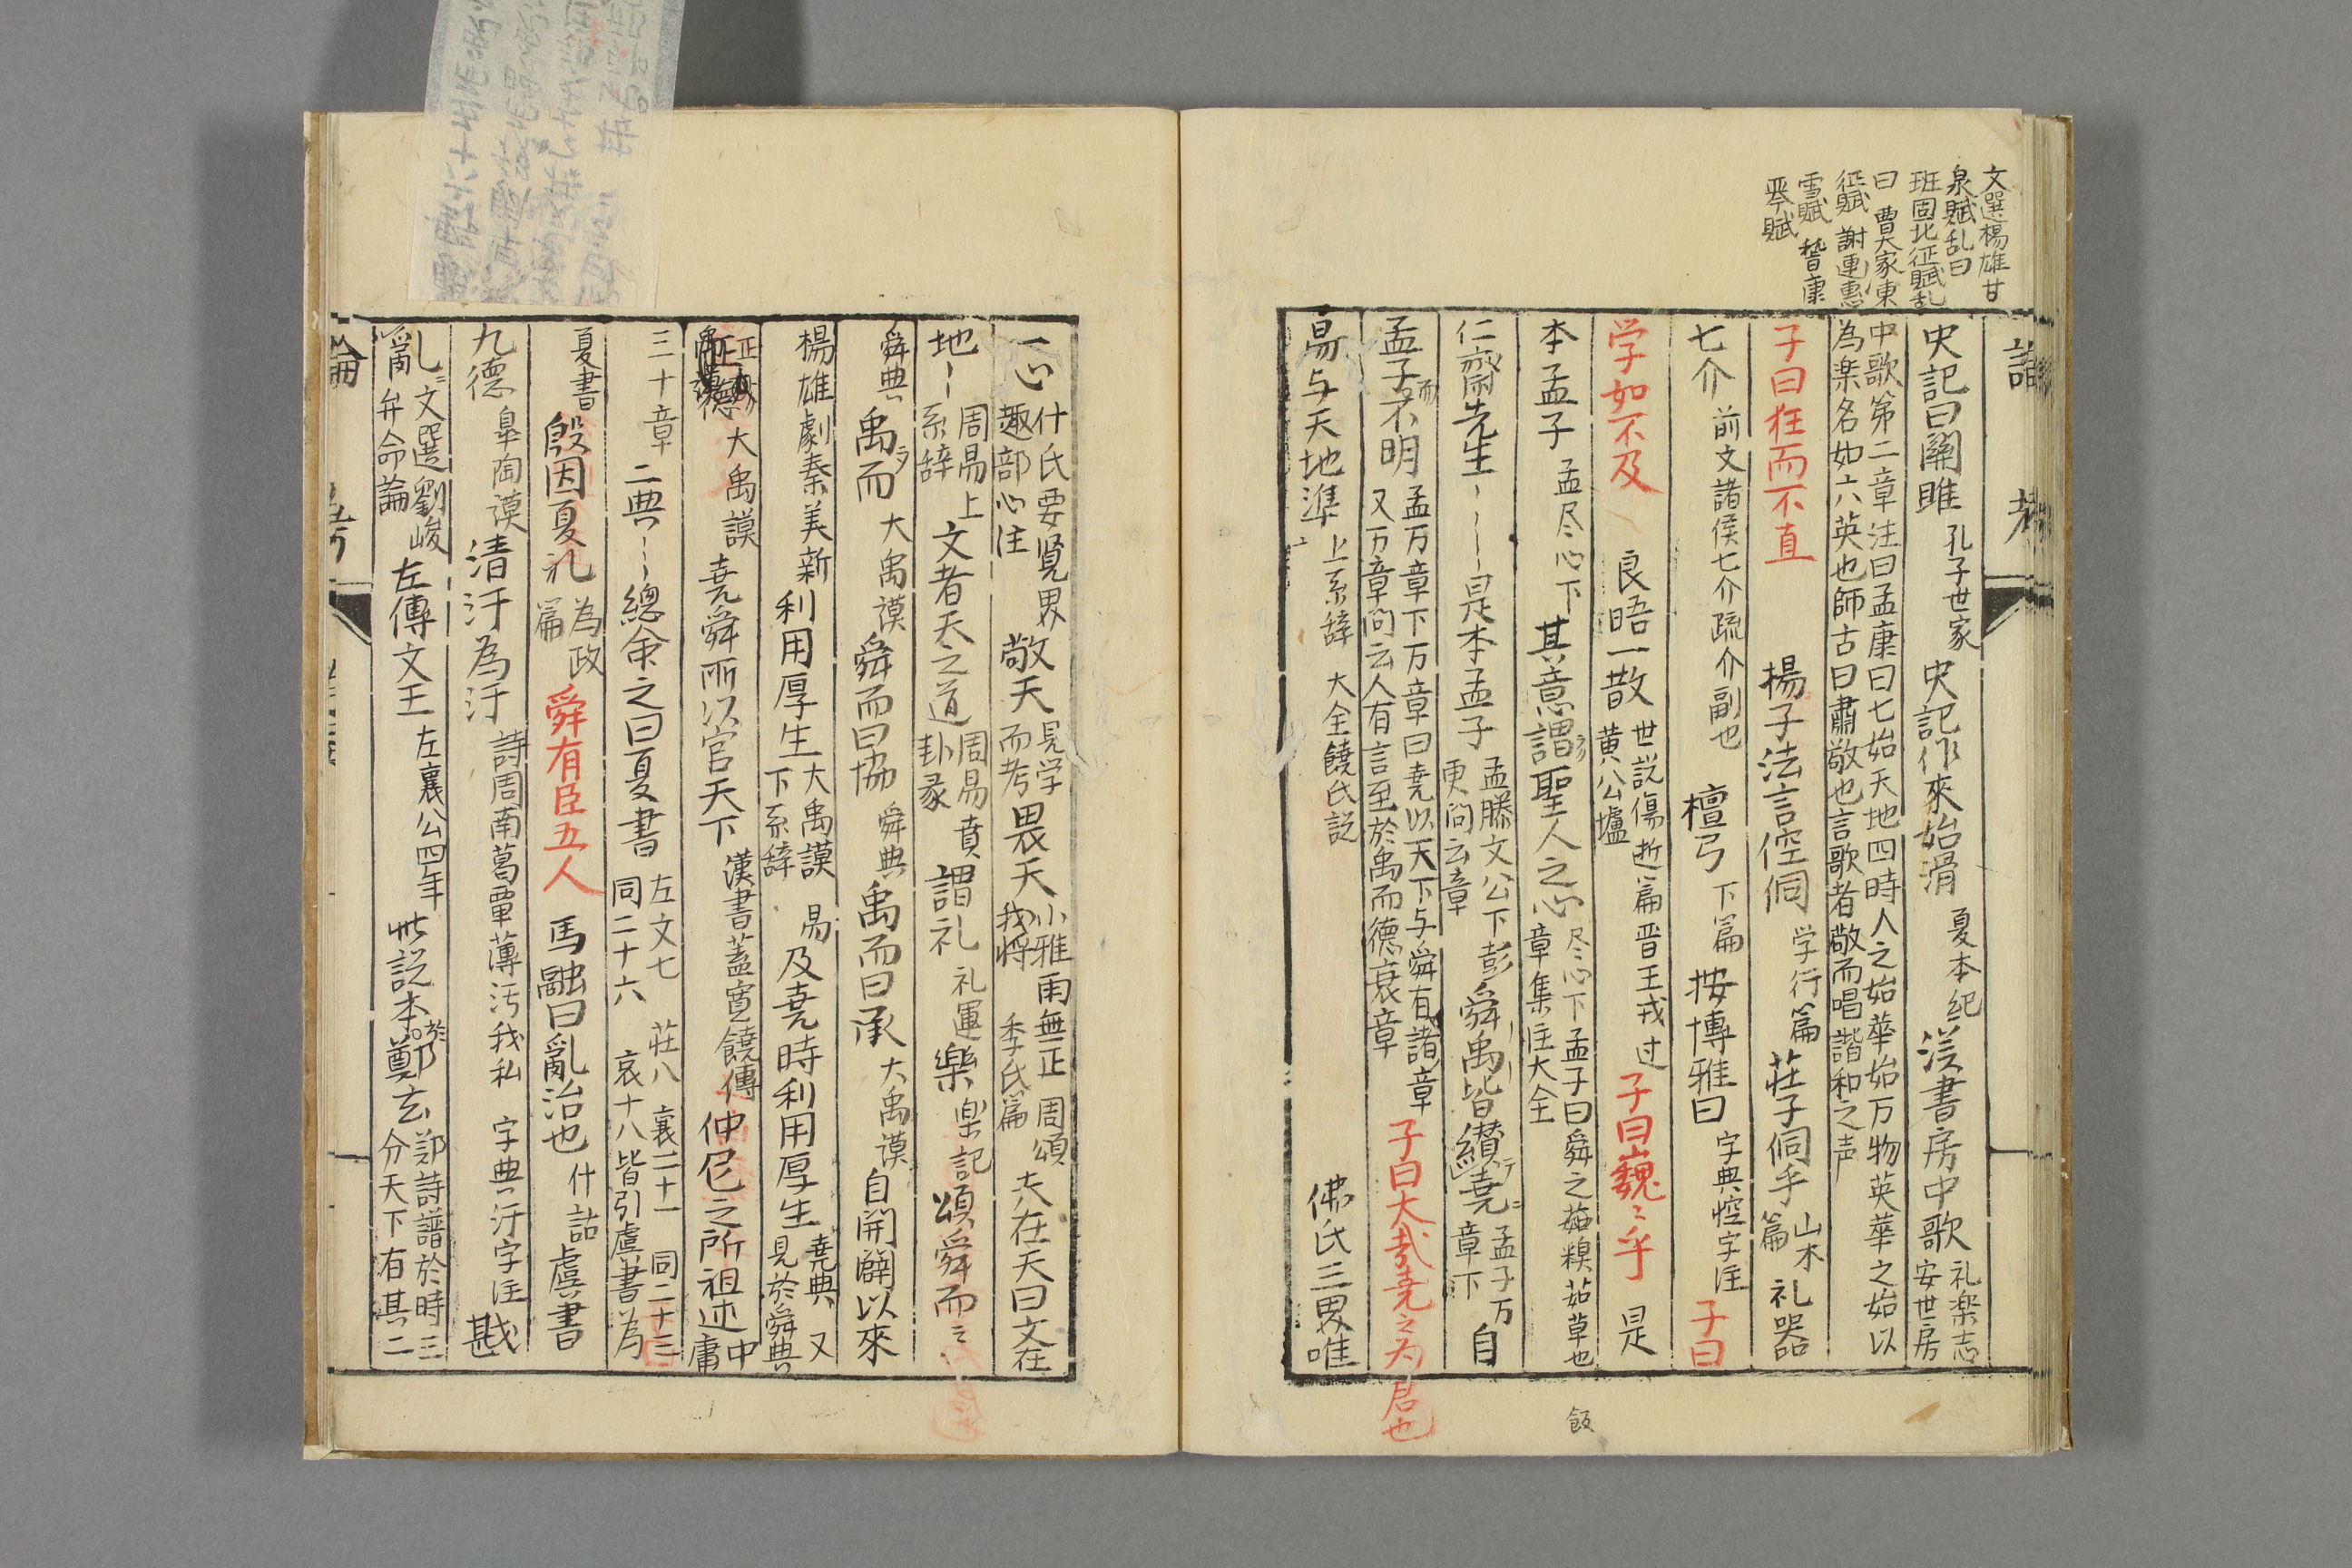 文選楊雄甘
泉賦乱曰
班固北征賦乱
曰 曹大家東
征賦 謝惠連
雪賦 嵇康
琴賦
史記曰關雎 孔子世家 史記作來始滑 夏本紀 漢書房中歌 礼楽志 安世房
中歌第二章注曰孟康曰七始天地四時人之始華始万物英華之始以
為楽名如六英也師古曰肅敬也言歌者敬而唱諧和之声
子曰狂而不直 楊子法言倥侗 学行篇 莊子侗乎 山木篇 礼器
七介 前文諸侯七介疏介副也 檀弓 下篇 按博雅曰 字典悾字注 子曰
学如不及 良晤一散 世説傷逝篇晋王戎过 黄公壚 子曰巍〻乎 是
本孟子 孟尽心下 其意謂聖人之心 尽心下 孟子曰舜之茹糗茹草也 章集注大全
仁齋先生 是本孟子 孟滕文公下彭 更問云章 舜禹皆纉堯 孟子万 章下 自
孟子不明 孟万章下万章曰堯以天下与舜有諸章 又万章問云人有言至於禹而德衰章 子曰大哉堯之為君也
易与天地準 上系辞 大全饒氏説 佛氏三界唯
一心 什氏要览界 趣部心注 敬天 見学 而考 畏天 小雅雨無正 周頌 我將 季氏篇 夫在天曰文在
地 周易上 系辞 文者天之道 周易賁 卦彖 謂礼 礼運 樂 楽記 頌舜而〻
舜典 禹而 大禹謨 舜而曰協 舜典 禹而曰承 大禹謨 自開闢以來
楊雄劇秦美新 利用厚生 大禹謨 易 下系辞 及堯時利用厚生 堯典 又 見於舜典
正德 大禹謨 堯舜所以官天下 漢書蓋寛饒傳 仲尼之所祖述 中庸
三十章 二典 總余之曰夏書 左文七 莊八 襄二十一 同二十三 同二十六 哀十八皆引虞書為
夏書 殷因夏礼 為政篇 舜有臣五人 馬融曰亂治也 什詁 虞書
九德 皐陶謨 清汙為汙 詩周南葛覃薄汚我私 字典汙字注 戡
亂 文選劉峻 弁命論 左傳文王 左襄公四年 此説本鄭玄 鄭詩譜於時三 分天下有其二
飯